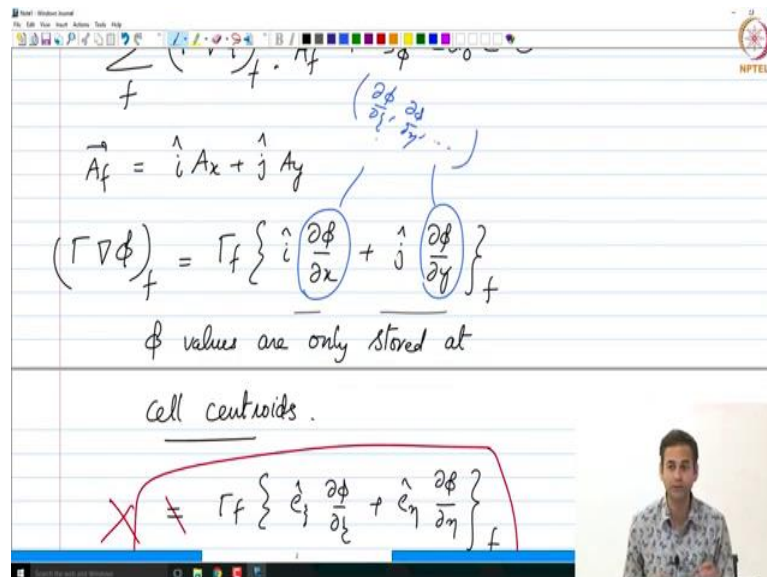 Note1 - Windows Journal
File Edit View Insert Actions Tools Help
NPTEL
∑_f (Γ∇φ)_f · A_f
(∂φ/∂ξ, ∂φ/∂η, ...)
A⃗_f = î A_x + ĵ A_y
(Γ∇φ)_f = Γ_f { î ∂φ/∂x + ĵ ∂φ/∂y }_f
φ values are only stored at
cell centroids.
= Γ_f { ê_ξ ∂φ/∂ξ + ê_η ∂φ/∂η }_f
Search the web and Windows